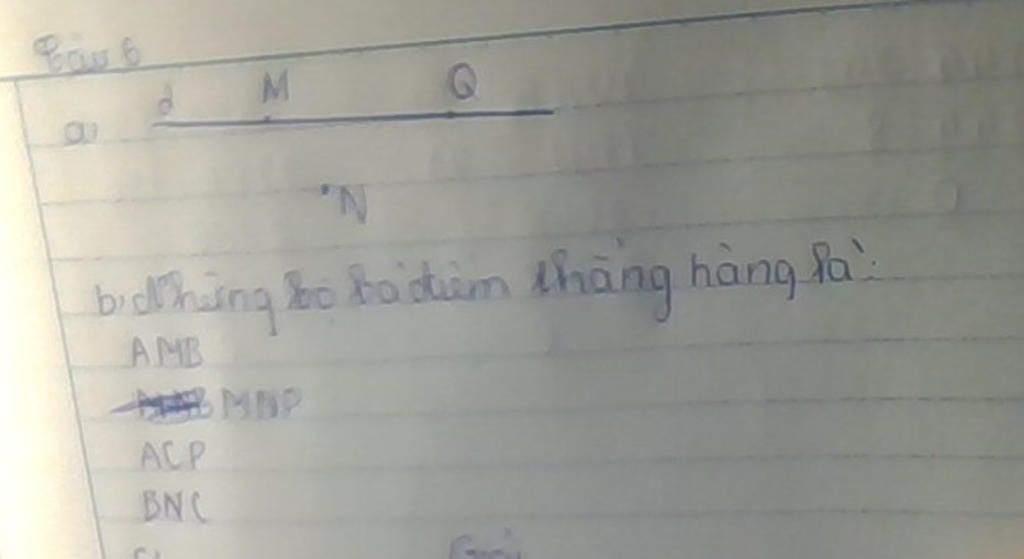 Câu 6
d M Q
a)
N
b, Những bộ ba điểm thẳng hàng là:
AMB
MNP
ACP
BNC